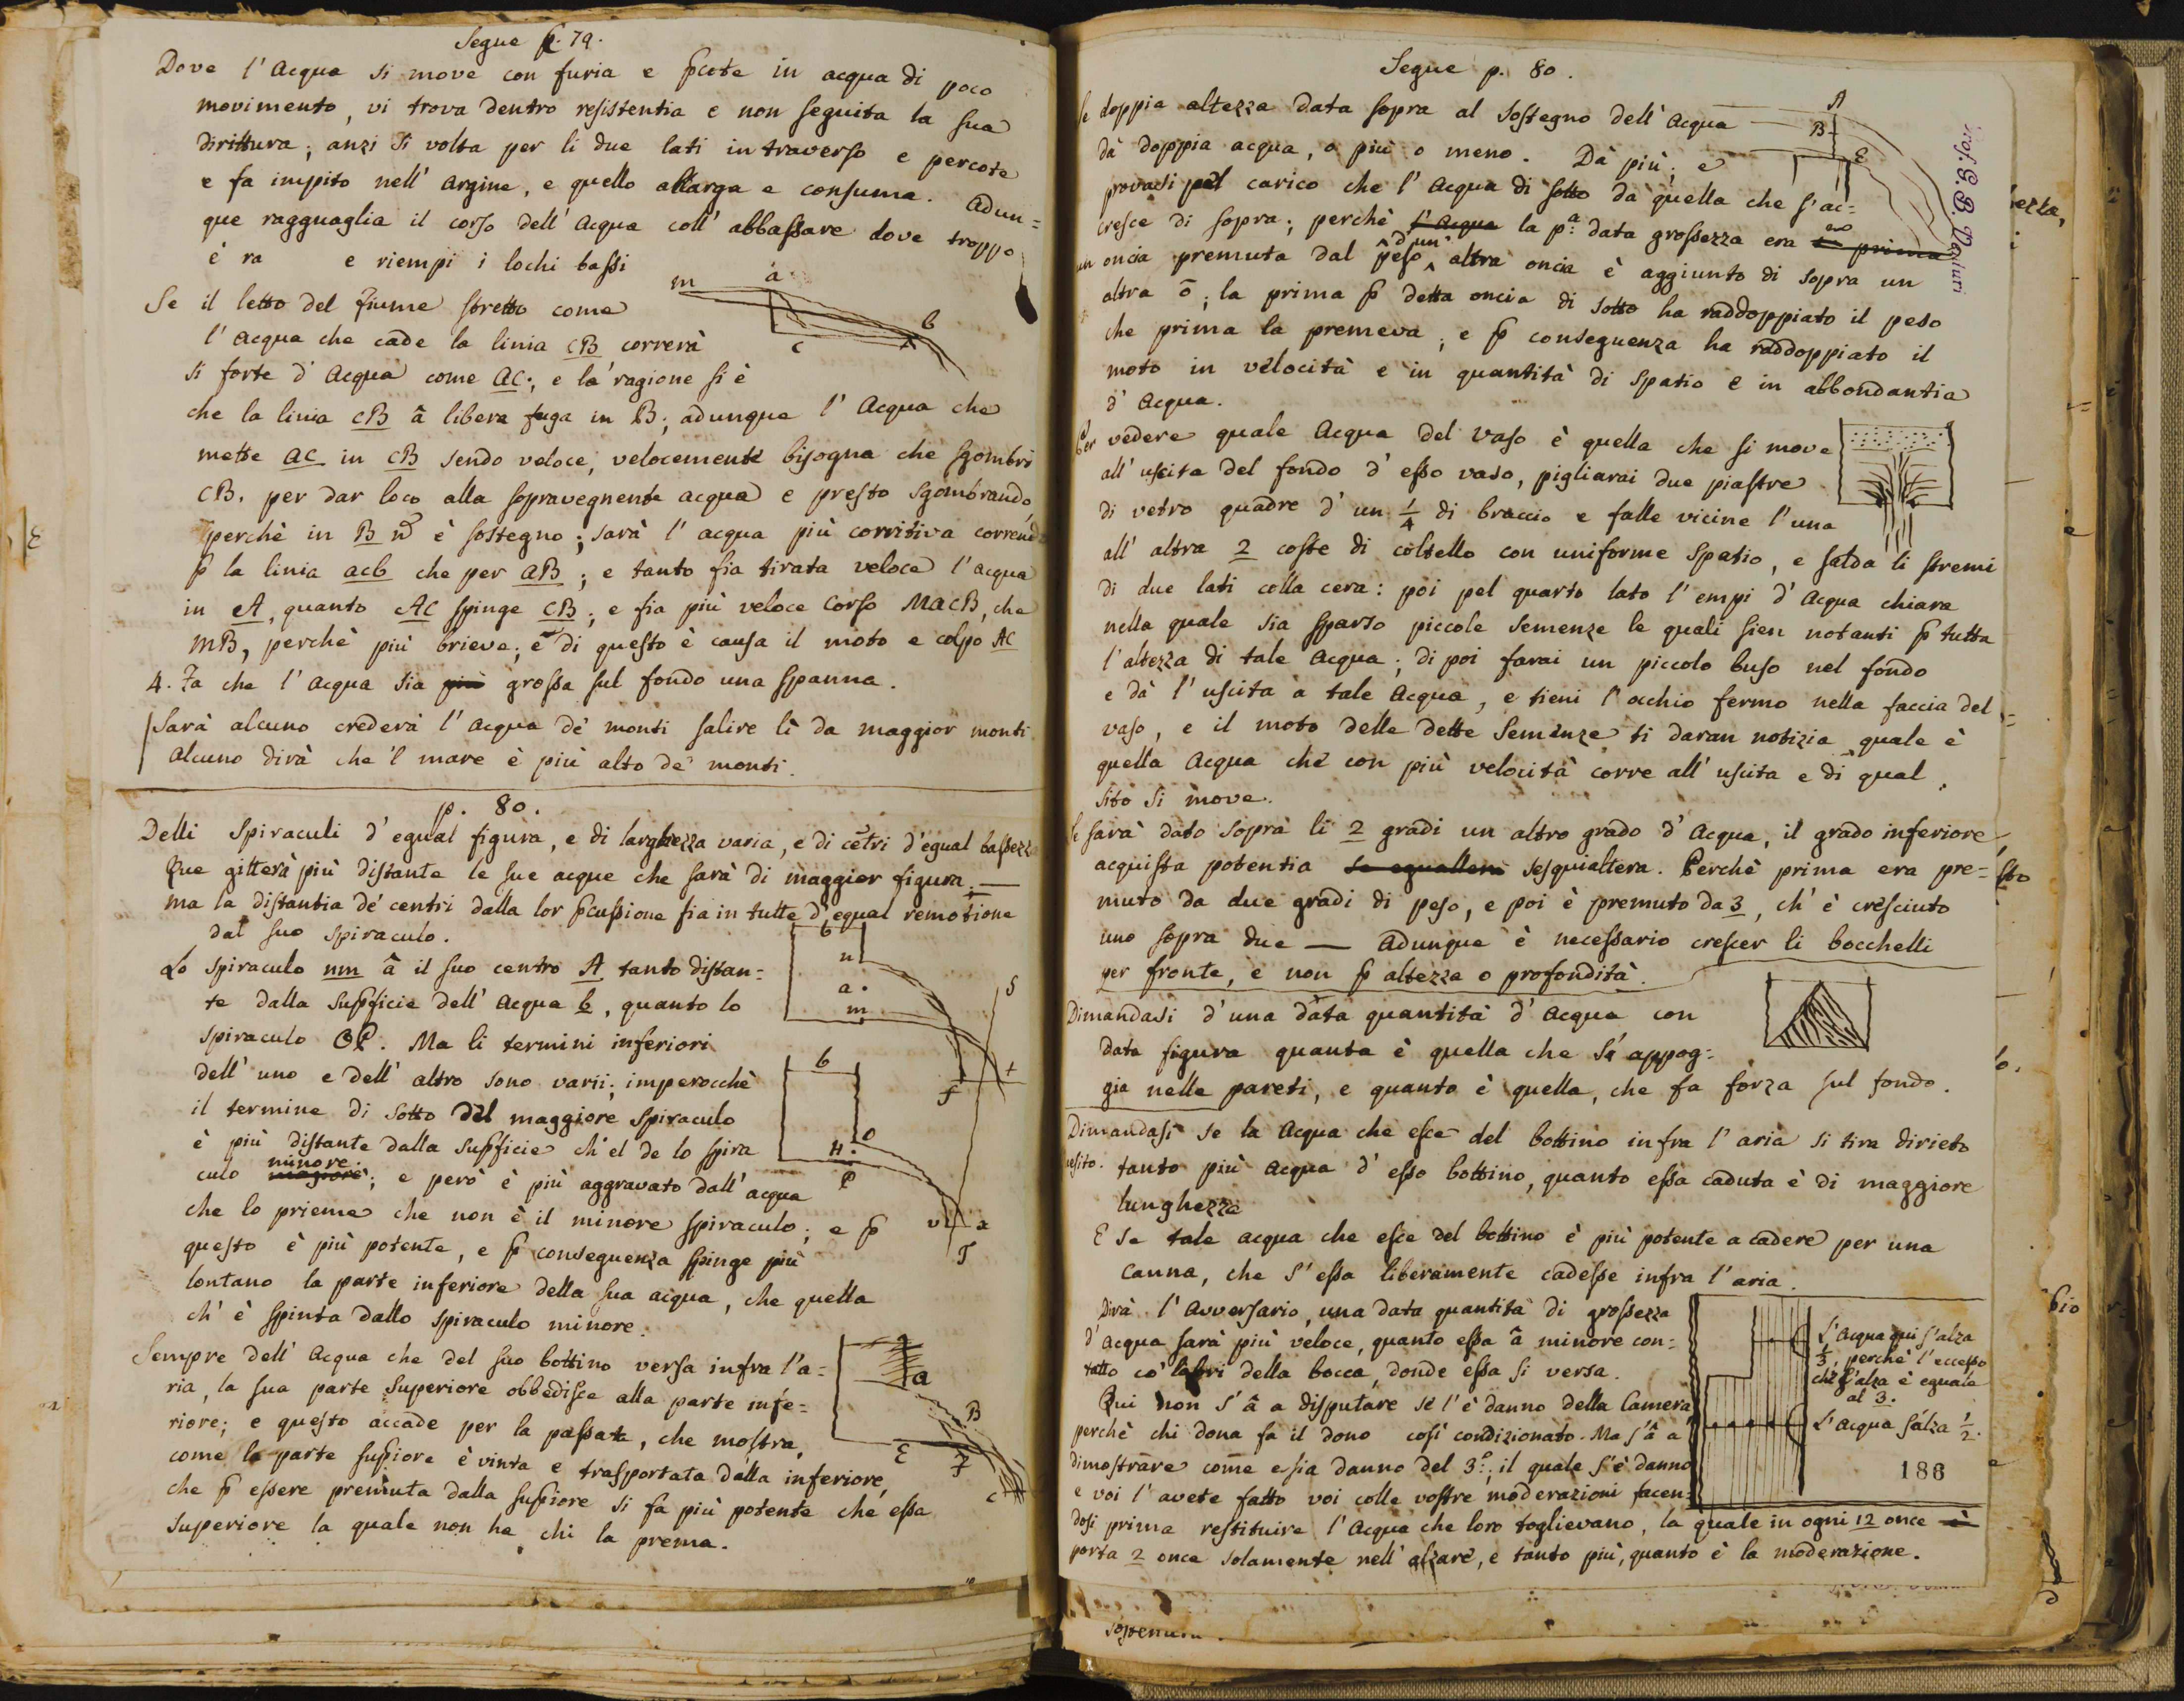 Segue p. 79.
Dove l'Acqua si move con furia e p̄cote in acqua di poco
movimento, vi trova dentro resistentia e non seguita la sua
dirittura; anzi si volta per li due lati in traverso e percote
e fa impito nell'argine, e quello allarga e consuma. Adun=
que ragguaglia il corso dell'Acqua coll'abbassare dove troppo
è ra e riempi i lochi bassi
Se il letto del fiume stretto come
l'Acqua che cade la linia CB correrà
si forte d'Acqua come AC; e la ragione si è
che la linia CB â libera fuga in B; adunque l'Acqua che
mette AC in CB sendo veloce, velocemente bisogna che sgombri
CB. per dar loco alla sopravegnente acqua e presto sgombrando,
perchè in B è sostegno; sarà l'acqua più corritiva corrend
p̄ la linia acb che per AB; e tanto fia tirata veloce l'acqua
in A, quanto AC spinge CB; e fia più veloce corso MACB, che
MB, perchè più brieve; e di questo è causa il moto e colpo AC
4. Fa che l'acqua sia più grossa sul fondo una spanna.
Sarà alcuno crederà l'acqua de' monti salire lì da maggior monti
Alcuno dirà che 'l mare è più alto de' monti.
m a b c
p. 80.
Delli Spiraculi d'egual figura, e di larghezza varia, e di cētri d'egual bassezza
Que gitterà più distante le sue acque che sarà di maggior figura; —
ma la distantia de' centri dalla lor p̄cussione fia in tutte d'egual remotione
dal suo spiraculo.
Lo spiraculo nm â il suo centro A tanto distan=
te dalla sup̄ficie dell'acqua b, quanto lo
spiraculo OP. Ma li termini inferiori
dell'uno e dell'altro sono varii; imperocchè
il termine di sotto del maggiore spiraculo
è più distante dalla sup̄ficie ch'el de lo spira
culo magiore minore; e però è più aggravato dall'acqua
che lo prieme che non è il minore spiraculo; e p̄
questo è più potente, e p̄ conseguenza spinge più
lontano la parte inferiore della sua acqua, che quella
ch'è spinta dallo spiraculo minore.
b n a. m S f t
b O H. P v x T
Sempre dell'Acqua che del suo bottino versa infra l'a=
ria, la sua parte superiore obbedisce alla parte infe=
riore; e questo accade per la passata, che mostra,
come la parte sup̄iore è vinta e trasportata dalla inferiore,
che p̄ essere premuta dalla sup̄iore si fa più potente che essa
superiore la quale non ha chi la prema.
a B E F c
Segue p. 80.
Se doppia altezza data sopra al sostegno dell'Acqua
dà doppia acqua, o più o meno. Dà più; e
provasi pel carico che l'Acqua di sotto dà quella che s'ac=
cresce di sopra; perchè l'Acqua la p.ª data grossezza era prima
un oncia premuta dal peso d'un altra oncia è aggiunto di sopra un
altra ō; la prima p̄ detta oncia di sotto ha raddoppiato il peso
che prima la premeva; e p̄ conseguenza ha raddoppiato il
moto in velocità e in quantità di spatio e in abbondantia
d'Acqua.
A B E
Per vedere quale Acqua del vaso è quella che si move
all'uscita del fondo d'esso vaso, pigliarai due piastre
di vetro quadre d'un 1/4 di braccio e falle vicine l'una
all'altra 2 coste di coltello con uniforme spatio, e salda li stremi
di due lati colla cera: poi pel quarto lato l'empi d'Acqua chiara
nella quale sia sparso piccole semenze le quali sien notanti p̄ tutta
l'altezza di tale Acqua; di poi farai un piccolo buso nel fondo
e dà l'uscita a tale Acqua, e tieni l'occhio fermo nella faccia del
vaso, e il moto delle dette semenze ti daran notizia quale è
quella Acqua che con più velocità corre all'uscita e di qual
sito si move.
Se sarà dato sopra li 2 gradi un altro grado d'Acqua, il grado inferiore
acquista potentia sesquialtera. Perchè prima era pre=
muto da due gradi di peso, e poi è premuto da 3, ch'è cresciuto
uno sopra due — Adunque è necessario crescer li bocchelli
per fronte, e non p̄ altezza o profondità.
Dimandasi d'una data quantità d'Acqua con
data figura quanta è quella che s'appog=
gia nelle pareti, e quanto è quella, che fa forza sul fondo.
Dimandasi se la Acqua che esce del bottino infra l'aria si tira dirieto
tanto più acqua d'esso bottino, quanto essa caduta è di maggiore
lunghezza
E se tale acqua che esce del bottino è più potente a cadere per una
canna, che s'essa liberamente cadesse infra l'aria.
Dirà l'Avversario, una data quantità di grossezza
d'acqua sarà più veloce, quanto essa â minore con=
tatto co' labri della bocca, donde essa si versa.
Qui non s'â a disputare se l'è danno della Camera
perchè chi dona fa il dono così condizionato. Ma s'â a
dimostrare come e sia danno del 3º; il quale s'è danno
e voi l'avete fatto voi colle vostre moderazioni facen=
dosi prima restituire l'Acqua che loro toglievano, la quale in ogni 12 once
porta 2 once solamente nell'alzare, e tanto più, quanto è la moderazione.
L'Acqua qui s'alza
1/3, perchè l'eccesso
che s'alza è eguale
al 3.
L'acqua s'alza 1/2.
186